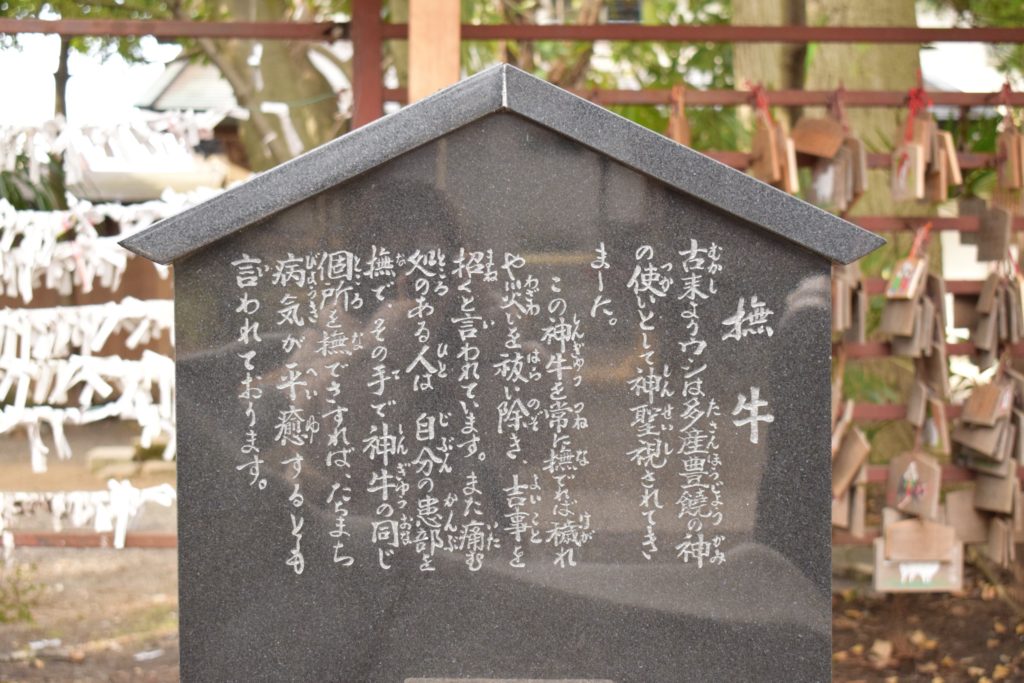 撫牛
古来よりウシは多産豊饒の神
の使いとして神聖視されてき
ました。
この神牛を常に撫でれば穢れ
や災いを祓い除き、吉事を
招くと言われています。また痛む
処のある人は 自分の患部を
撫で その手で神牛の同じ
個所を撫でさすれば たちまち
病気が平癒するとも
言われております。